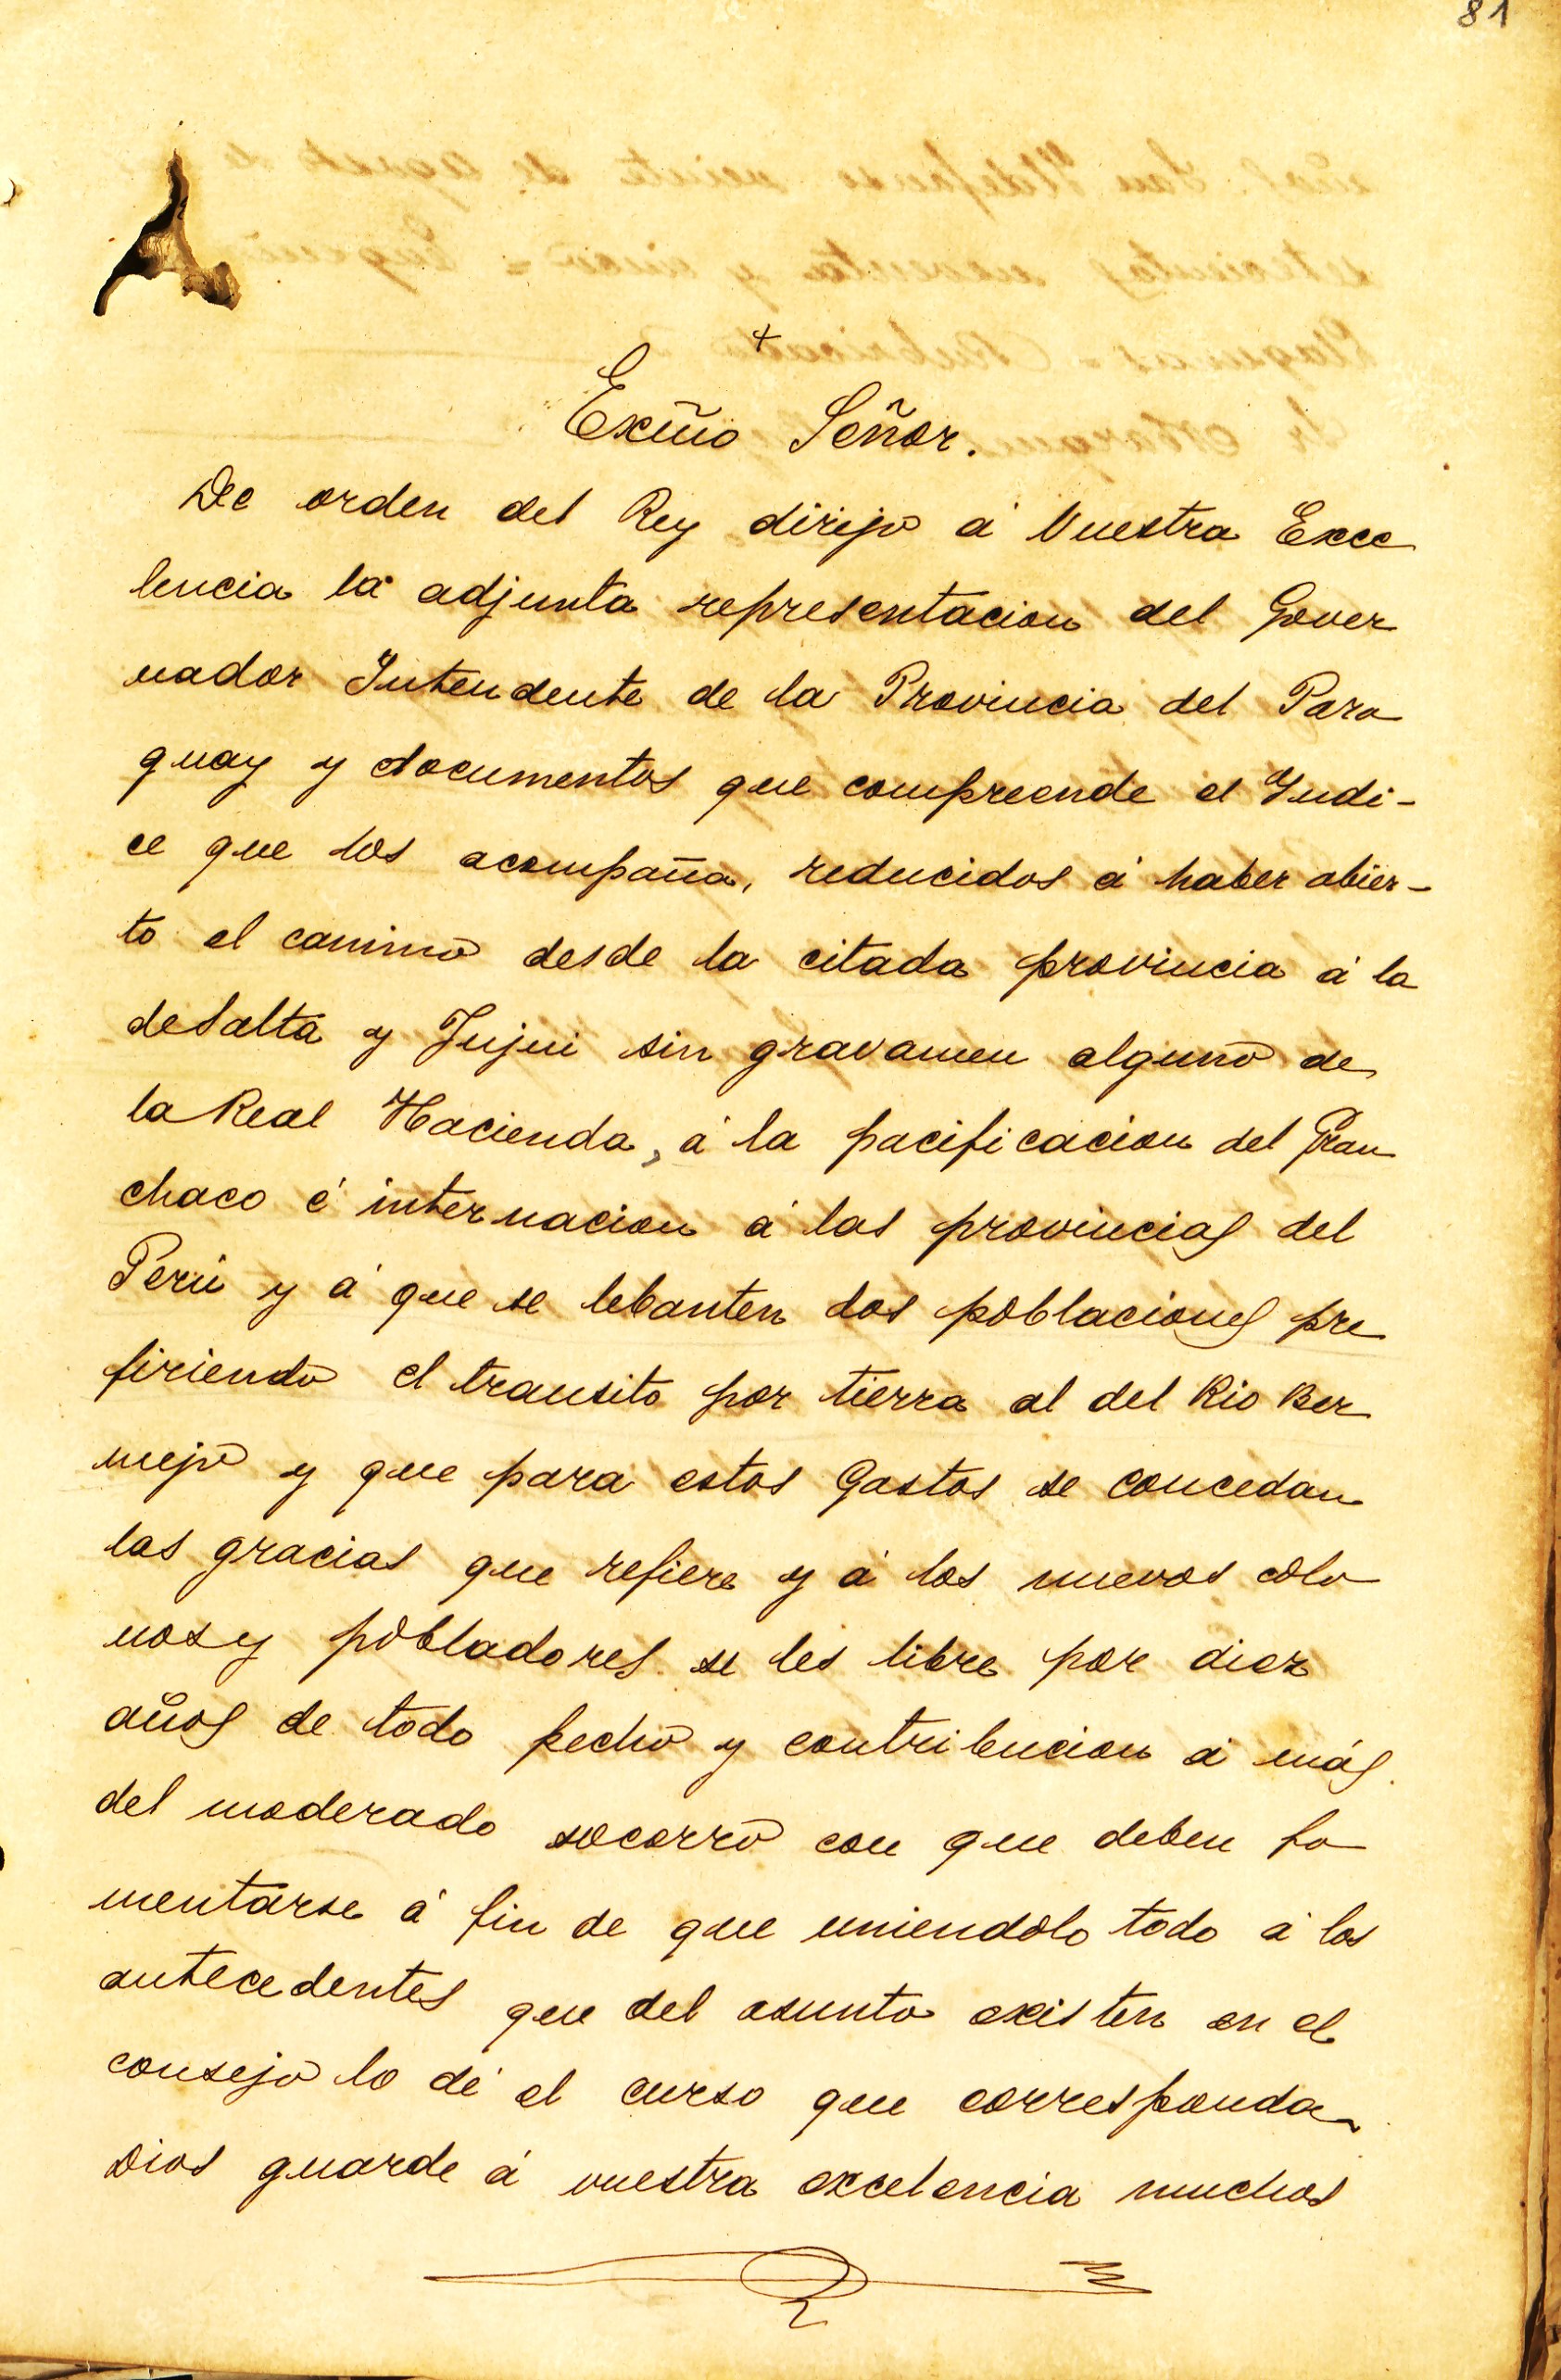 81
+
Exmõ Señor.
De orden del Rey dirijo á Vuestra Exce
lencia la adjunta representacion del Gover
nador Intendente de la Provincia del Para
guay y documentos que compreende el Yndi-
ce que los acompaña, reducidos á haber abier-
to el camino desde la citada provincia á la
de Salta y Jujui sin gravamen alguno de
la Real Hacienda, á la pacificacion del Gran
chaco é internacion á las provincias del
Perú y á que se lebanten dos poblaciones pre
firiendo el transito por tierra al del Rio Ber
mejo y que para estos Gastos se concedan
las gracias que refiere y á los nuevos colo
nos y pobladores se les libre por diez
años de todo pecho y contribucion á más
del moderado socorro con que deben fo
mentarse á fin de que uniendolo todo á los
antecedentes que del asunto existen en el
consejo lo dé el curso que corresponda
Dios guarde á vuestra excelencia muchos